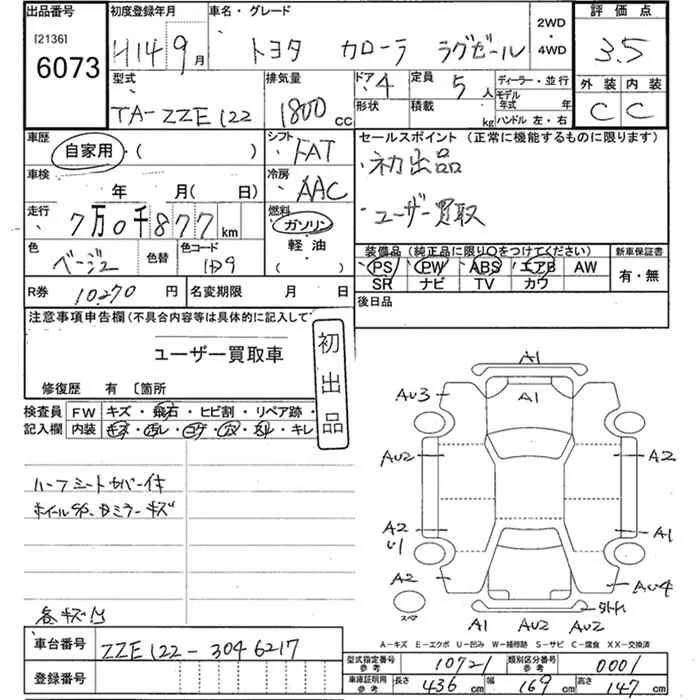 出品番号 初度登録年月 車名・グレード 2WD ・ 4WD 評価点
[2136]
6073
H14 9月 トヨタ カローラ ラグゼール 3.5
型式 排気量 ドア 4 定員 5人 ディーラー・並行 外装 内装
TA-ZZE122 1800cc 形状 積載 kg モデル年式 年 ハンドル 左・右 C C
車歴 自家用・( ) シフト FAT セールスポイント(正常に機能するものに限ります)
車検 年 月(日) 冷房 AAC ・初出品
走行 7万0千877km 燃料 ガソリン ・ユーザー買取
軽油
( )
色 ベージュ 色替 色コード
装備品(純正品に限り○をつけてください) 新車保証書
PS PW ABS エアB AW 有・無
SR ナビ TV カワ
R券 10270円 名変期限 月 日 後日品
注意事項申告欄(不具合内容等は具体的に記入して
ユーザー買取車
初出品
修復歴 有 〔箇所
検査員 FW キズ・飛石・ヒビ割・リペア跡・
記入欄 内装 キズ・汚レ・コゲ・穴・スレ・キレ
ハーフシートカバー付
各キズ凹
A1
AU3 A1
AU2 A2
A2 A1
U1
A2 AU4
スペア 外れ
A1 AU2 AU2
A-キズ E-エクボ U-凹み W-補修跡 S-サビ C-腐食 XX-交換済
車台番号 ZZE122-3046217
登録番号
型式指定番号 参考 10721 類別区分番号 参考 0001
車庫証明用 参考 長さ 436cm 幅 169cm 高さ 147cm